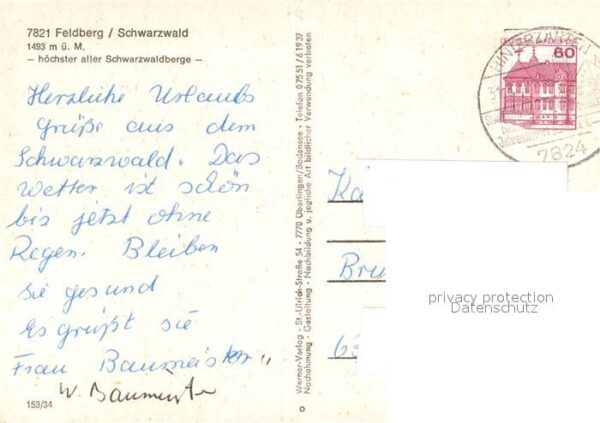 7821 Feldberg / Schwarzwald
1493 m ü. M.
— höchster aller Schwarzwaldberge —
Herzliche Urlaubs
grüße aus dem
Schwarzwald. Das
Wetter ist schön
bis jetzt ohne
Regen. Bleiben
Sie gesund
Es grüßt sie
Frau Baumeister
W. Baumeister
153/34
Werner-Verlag - St.-Ulrich-Straße 54 - 7770 Überlingen/Bodensee - Telefon 07551/61937
Nachahmung - Gestaltung - Nachbildung u. jegliche Art bildlicher Verwendung verboten
HINTERZARTEN
60
7824
Ka
Bru
privacy protection
Datenschutz